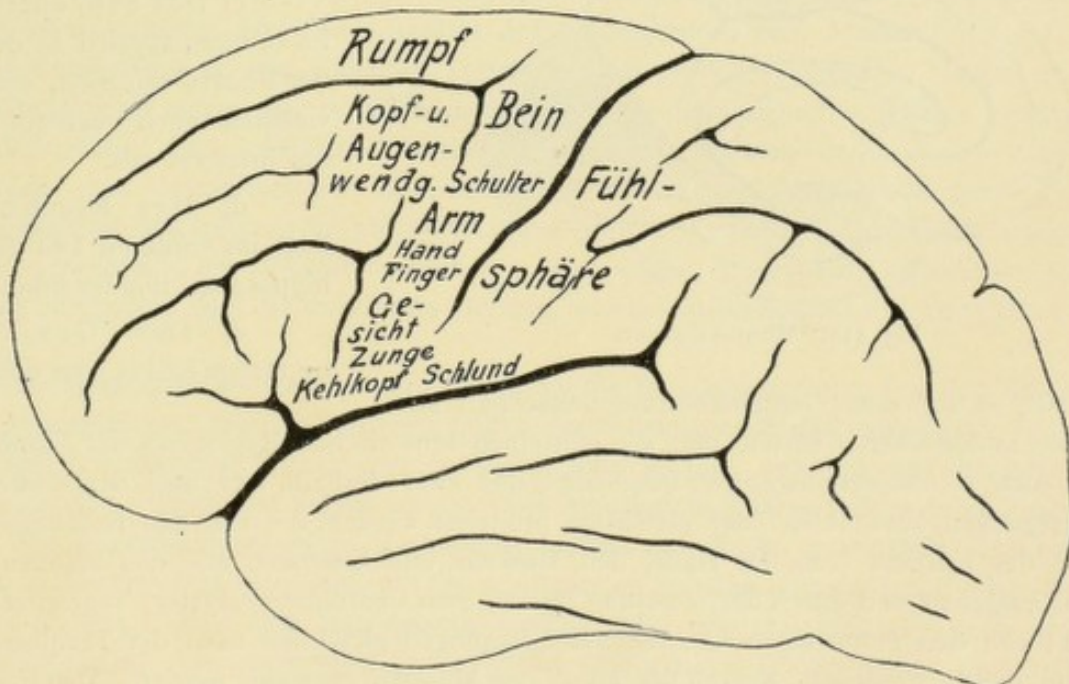 Rumpf
Kopf-u.
Augen-
wendg.
Bein
Schulter
Arm
Hand
Finger
Ge-
sicht
Zunge
Kehlkopf
Schlund
Fühl-
sphäre